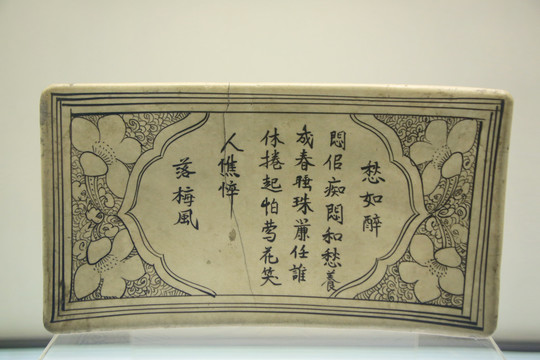 愁如醉
悶佀痴悶和愁養
成春睡珠簾任誰
休捲起怕莺花笑
人憔悴
落梅風